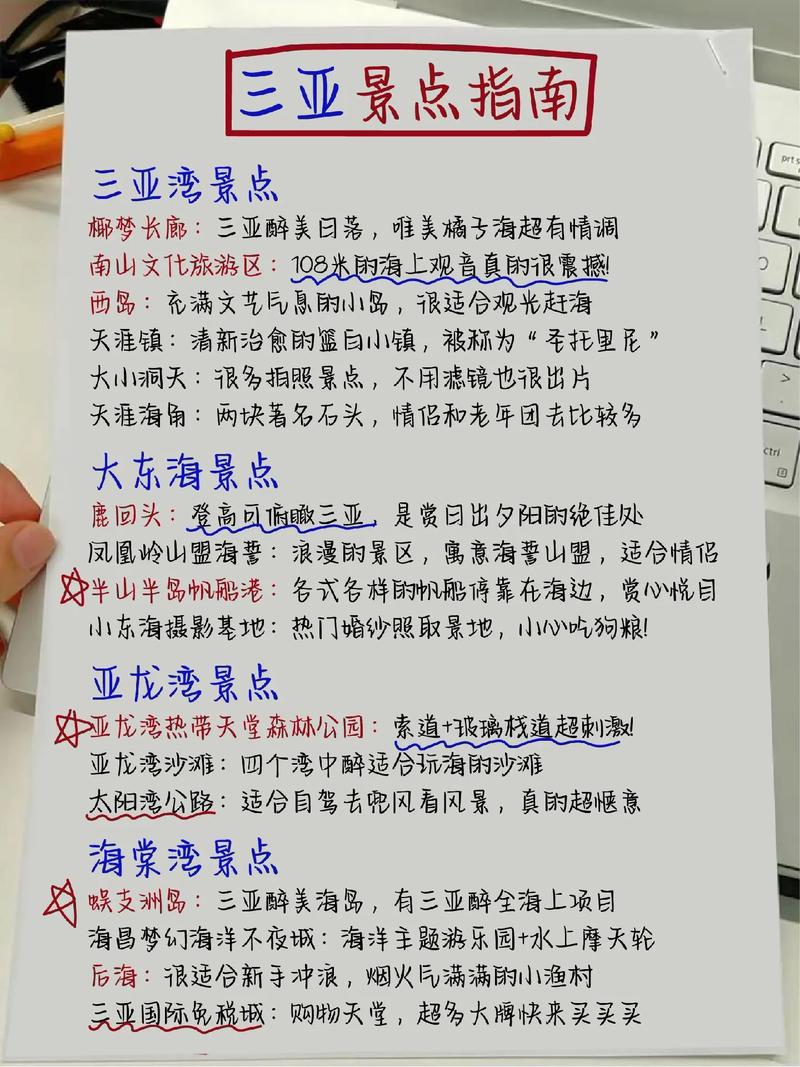 三亚景点指南
三亚湾景点
椰梦长廊：三亚醉美日落，唯美橘子海超有情调
南山文化旅游区：108米的海上观音真的很震撼!
西岛：充满文艺气息的小岛，很适合观光赶海
天涯镇：清新治愈的篮白小镇，被称为“圣托里尼”
大小洞天：很多拍照景点，不用滤镜也很出片
天涯海角：两块著名石头，情侣和老年团去比较多
大东海景点
鹿回头：登高可俯瞰三亚，是赏日出夕阳的绝佳处
凤凰岭山盟海誓：浪漫的景区，寓意海誓山盟，适合情侣
半山半岛帆船港：各式各样的帆船停靠在海边，赏心悦目
小东海摄影基地：热门婚纱照取景地，小心吃狗粮!
亚龙湾景点
亚龙湾热带天堂森林公园：索道+玻璃栈道超刺激!
亚龙湾沙滩：四个湾中醉适合玩海的沙滩
太阳湾公路：适合自驾去兜风看风景，真的超惬意
海棠湾景点
蜈支洲岛：三亚醉美海岛，有三亚醉全海上项目
海昌梦幻海洋不夜城：海洋主题游乐园+水上摩天轮
后海：很适合新手冲浪，烟火气满满的小渔村
三亚国际免税城：购物天堂，超多大牌快来买买买
prt s
ctrl